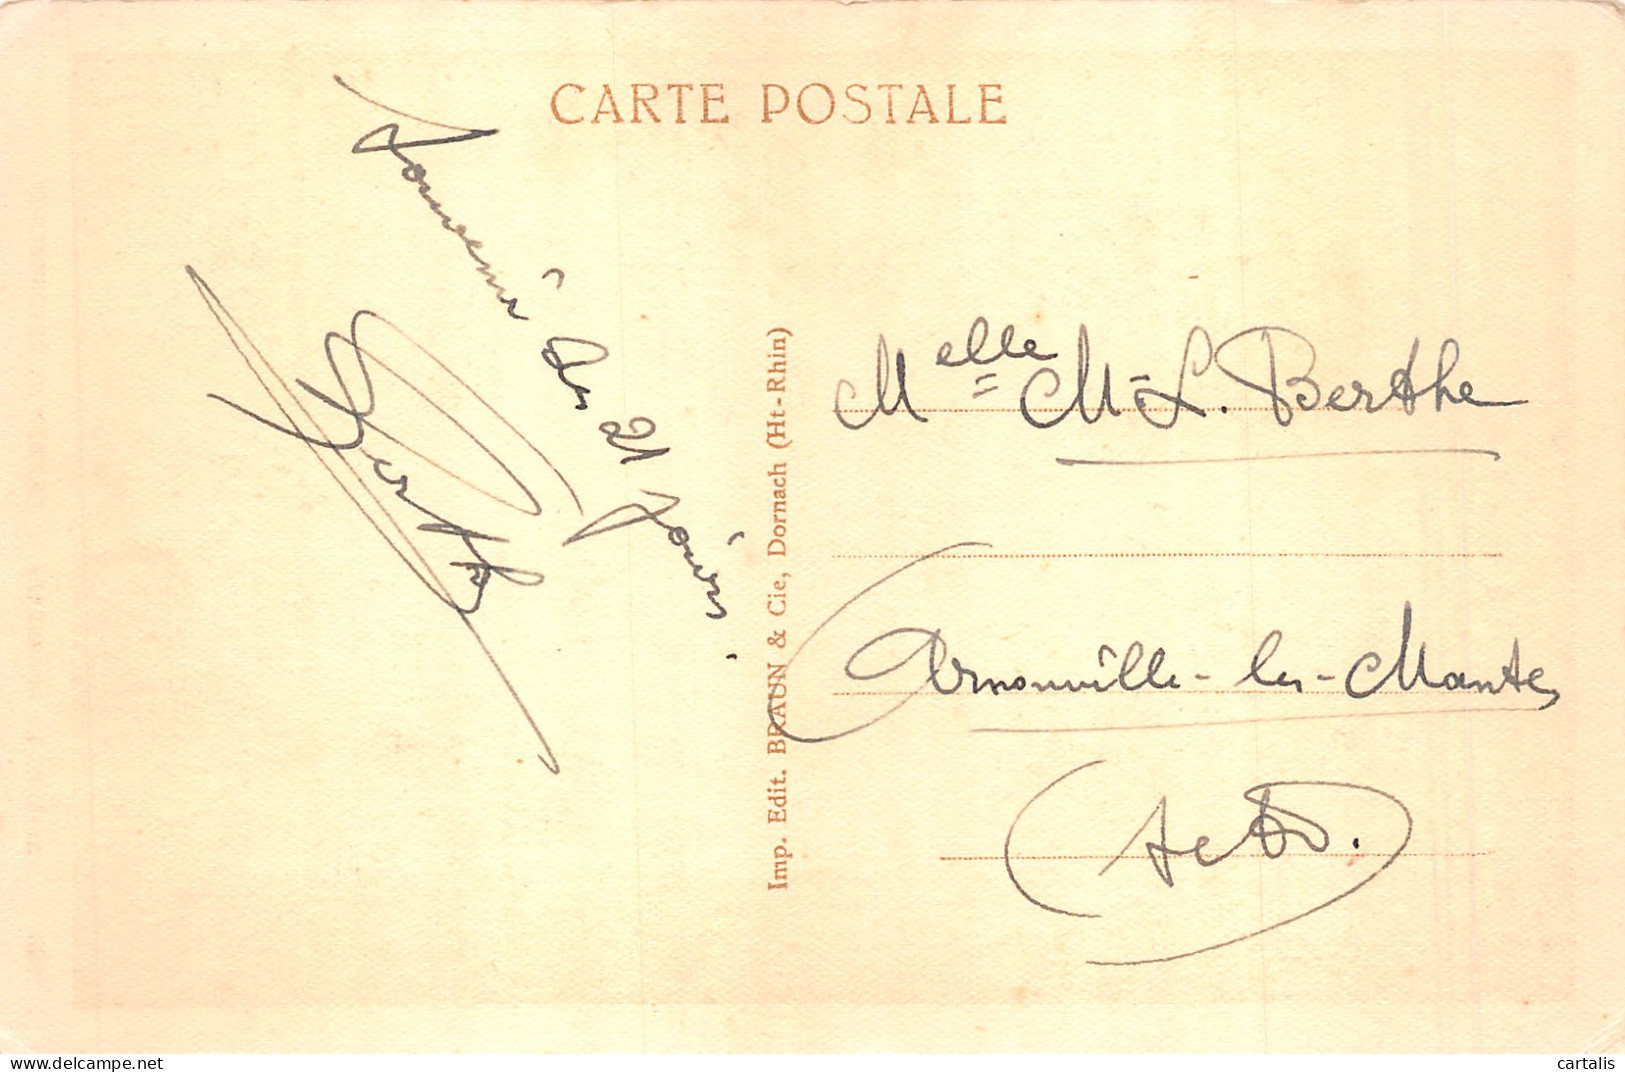 CARTE POSTALE
Souvenir des 21 jours.
Berthe
Imp. Edit. BRAUN & Cie, Dornach (Ht-Rhin)
Melle M-L. Berthe
Arnouville-les-Mantes
(S et O.)
cartalis